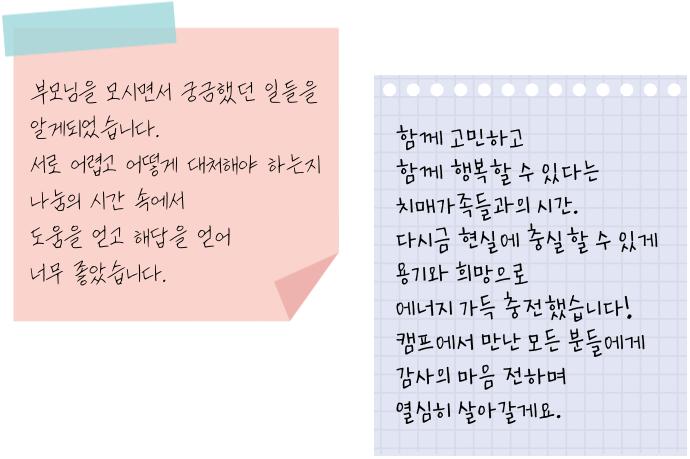 부모님을 모시면서 궁금했던 일들을
알게되었습니다.
서로 어렵고 어떻게 대처해야 하는지
나눔의 시간 속에서
도움을 얻고 해답을 얻어
너무 좋았습니다.
함께 고민하고
함께 행복할 수 있다는
치매가족들과의 시간.
다시금 현실에 충실할 수 있게
용기와 희망으로
에너지 가득 충전했습니다!
캠프에서 만난 모든 분들에게
감사의 마음 전하며
열심히 살아갈게요.